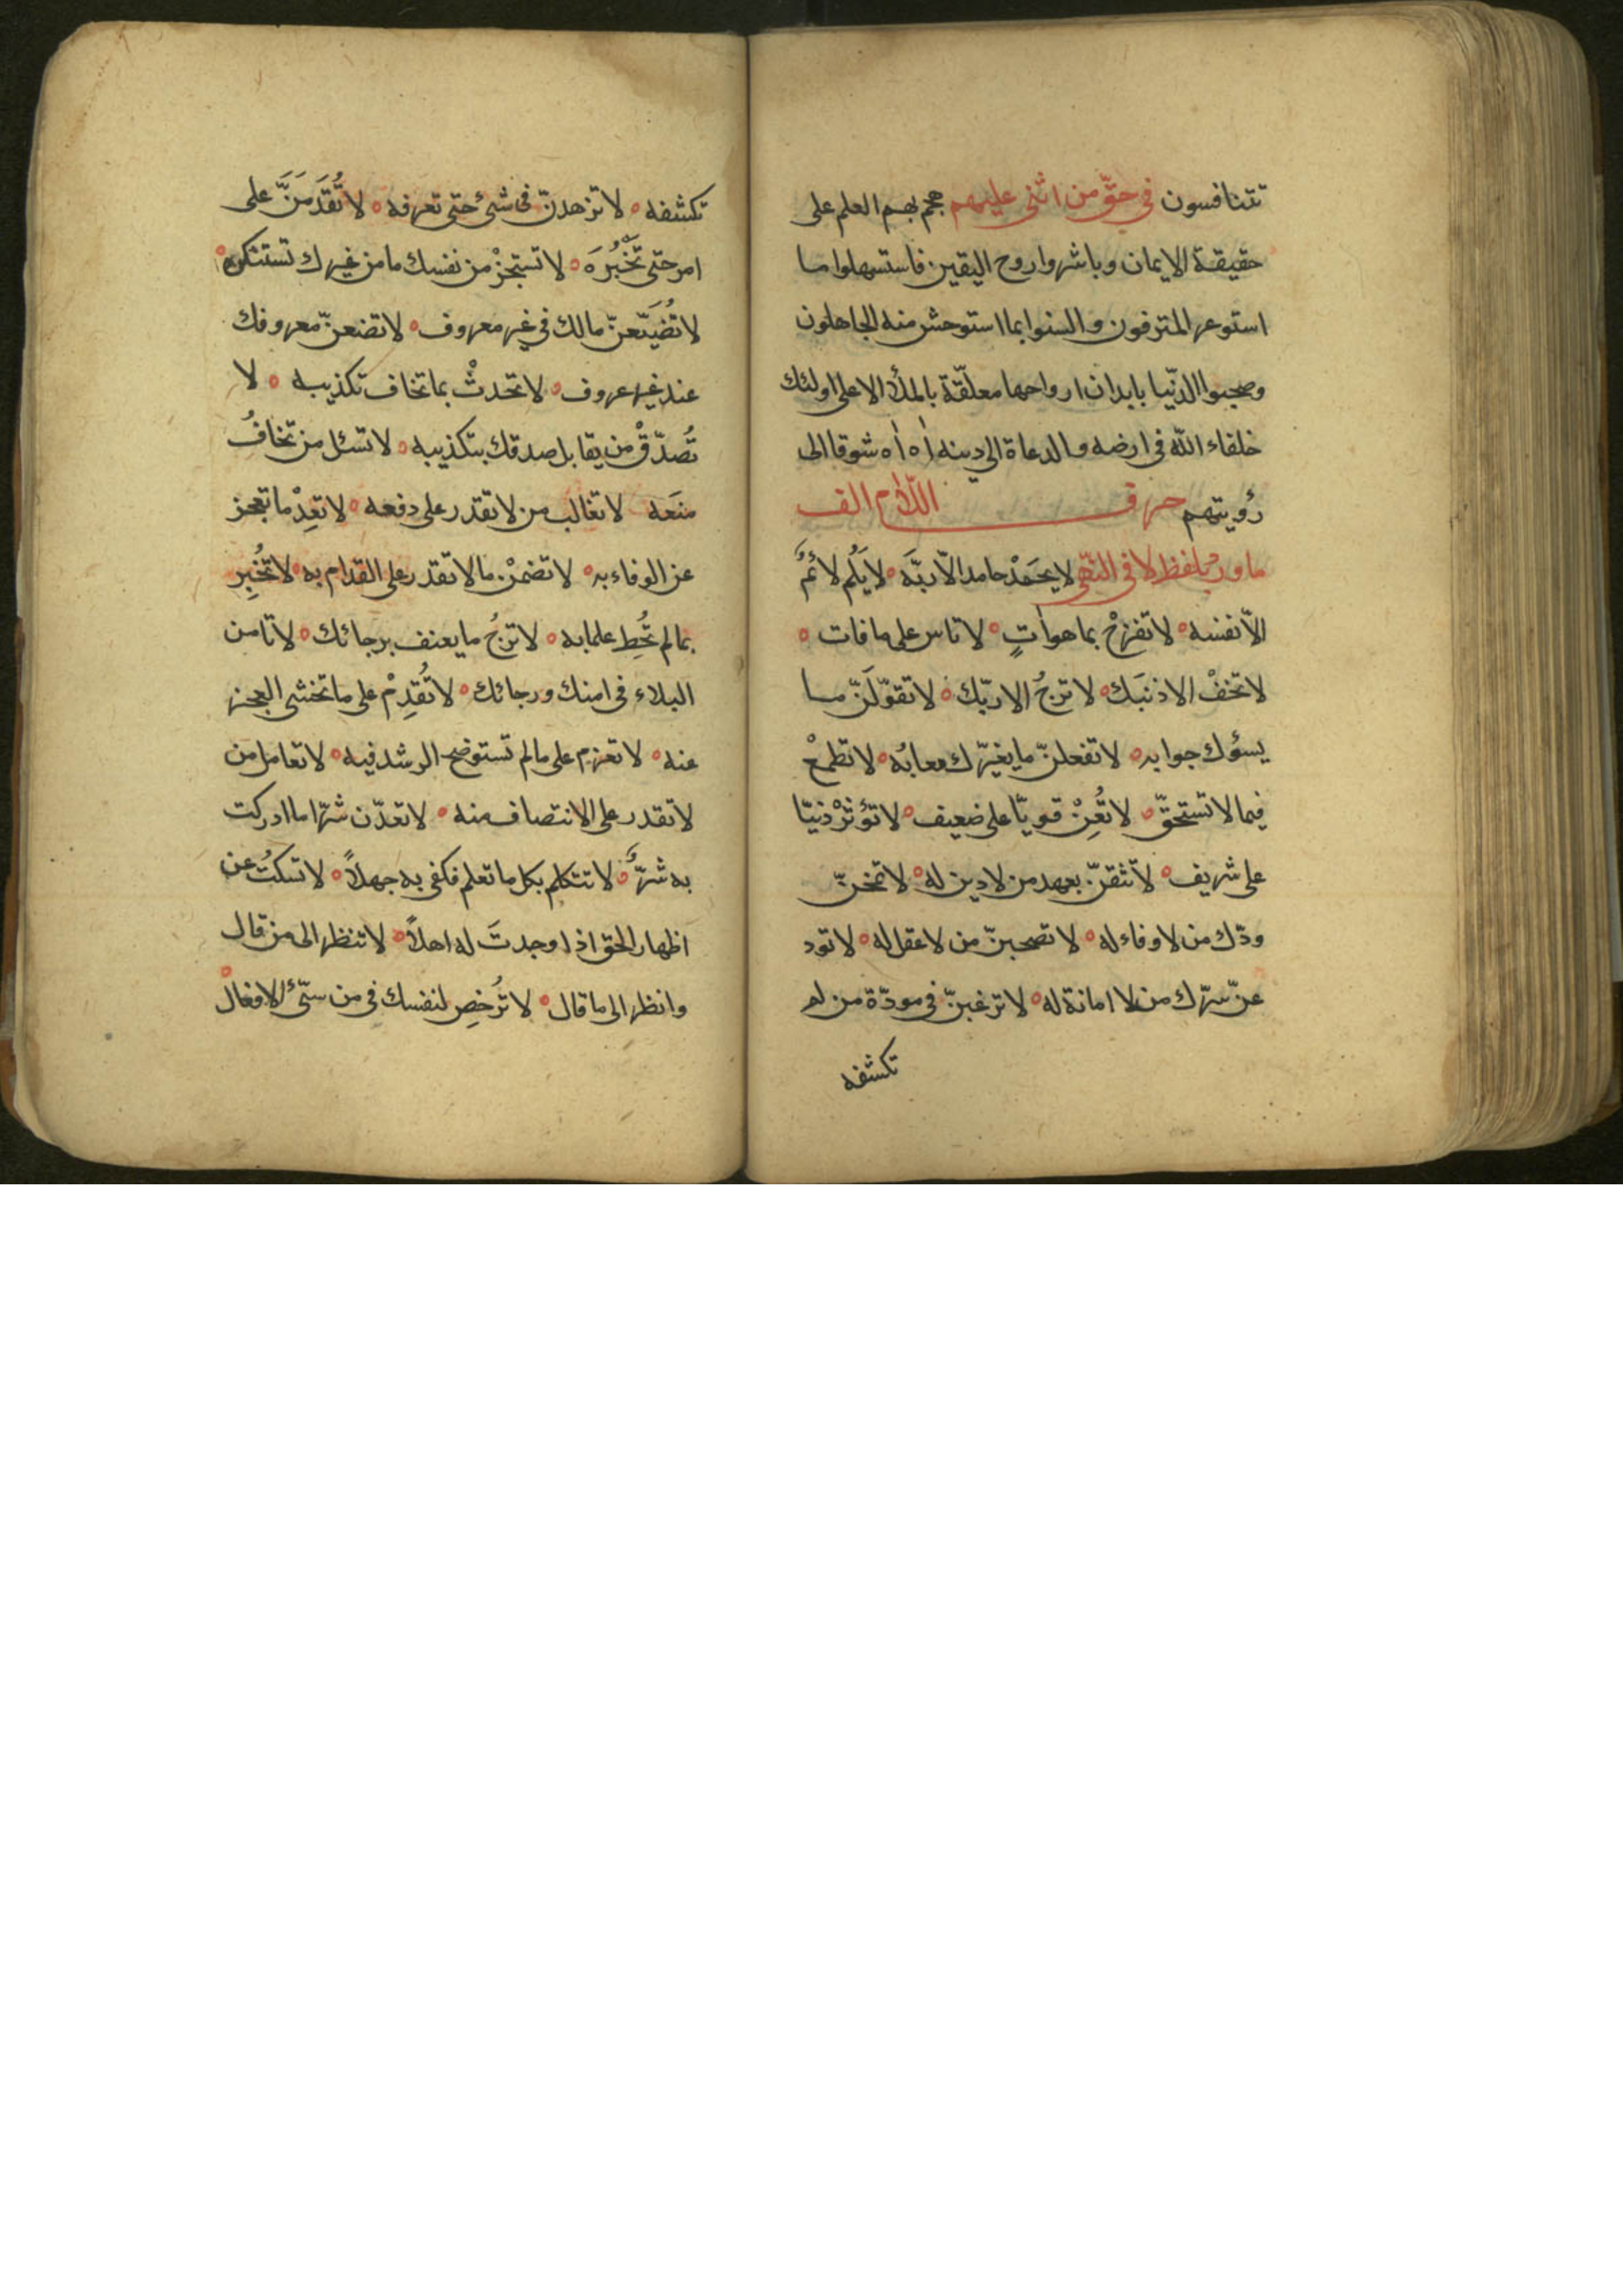 تتنافسون في حقّ من اثنى عليهم هجم بهم العلم على
حقيقة الايمان وباشروا روح اليقين فاستسهلوا ما
استوعر المترفون وانسوا بما استوحش منه الجاهلون
وصحبوا الدّنيا بابدان ارواحها معلّقة بالملأ الاعلى اولئك
خلفاء الله في ارضه والدعاة الى دينه اٰه اٰه شوقا الى
رؤيتهم حرف اللام الف
ما ورد بلفظ لا في النهى لا يحمَدْ حامد الّا ربَّه لا يَلُم لائمٌ
الّا نفسه لا تفرحْ بما هو اٰتٍ لا تاس على ما فات
لا تخفْ الا ذنبَك لا ترجُ الا ربّك لا تقولَنّ ما
يسؤك جوابه لا تفعلنّ ما يغيّرك معابُه لا تطمعْ
فيما لا تستحقّ لا تُعِنْ قويّا على ضعيف لا تؤثرْ دنيّا
على شريف لا تثقنّ بعهد من لا دين له لا تمنحنّ
ودّك من لا وفاء له لا تصحبنّ من لا عقل له لا تود
عنّ سرّك من لا امانة له لا ترغبنّ في مودّة من لم
تكشفه
تكشفه لا تزهدنّ في شئ حتى تعرفه لا تُقدَمَنَّ على
امر حتى تَخْبُرَه لا تستجزْ من نفسك ما من غيرك تستنكره
لا تُضَيّعنّ مالك في غير معروف لا تضعنّ معروفك
عند غير عروف لا تحدثْ بما تخاف تكذيبه لا
تُصدّقْ من يقابل صدقك بتكذيبه لا تسئل من تخافُ
منعَه لا تغالب من لا تقدر على دفعه لا تعِدْ ما تعجز
عن الوفاء به لا تضمنْ ما لا تقدر على القدام به لا تُخبِر
بما لم تُحِط علما به لا ترجُ ما يعنف برجائك لا تامن
البلاء في امنك ورجائك لا تُقدِمْ على ما تخشى العجز
عنه لا تعزم على ما لم تستوضح الرشد فيه لا تعامل من
لا تقدر على الانتصاف منه لا تعدّن شرّا ما ادركت
به شرٌّ لا تتكلم بكل ما تعلم فكفى به جهلاً لا تسكتُ عن
اظهار الحق اذا وجدتَ له اهلاً لا تنظر الى من قال
وانظر الى ما قال لا تُرخصِ لنفسك في من سيّئ الافعال